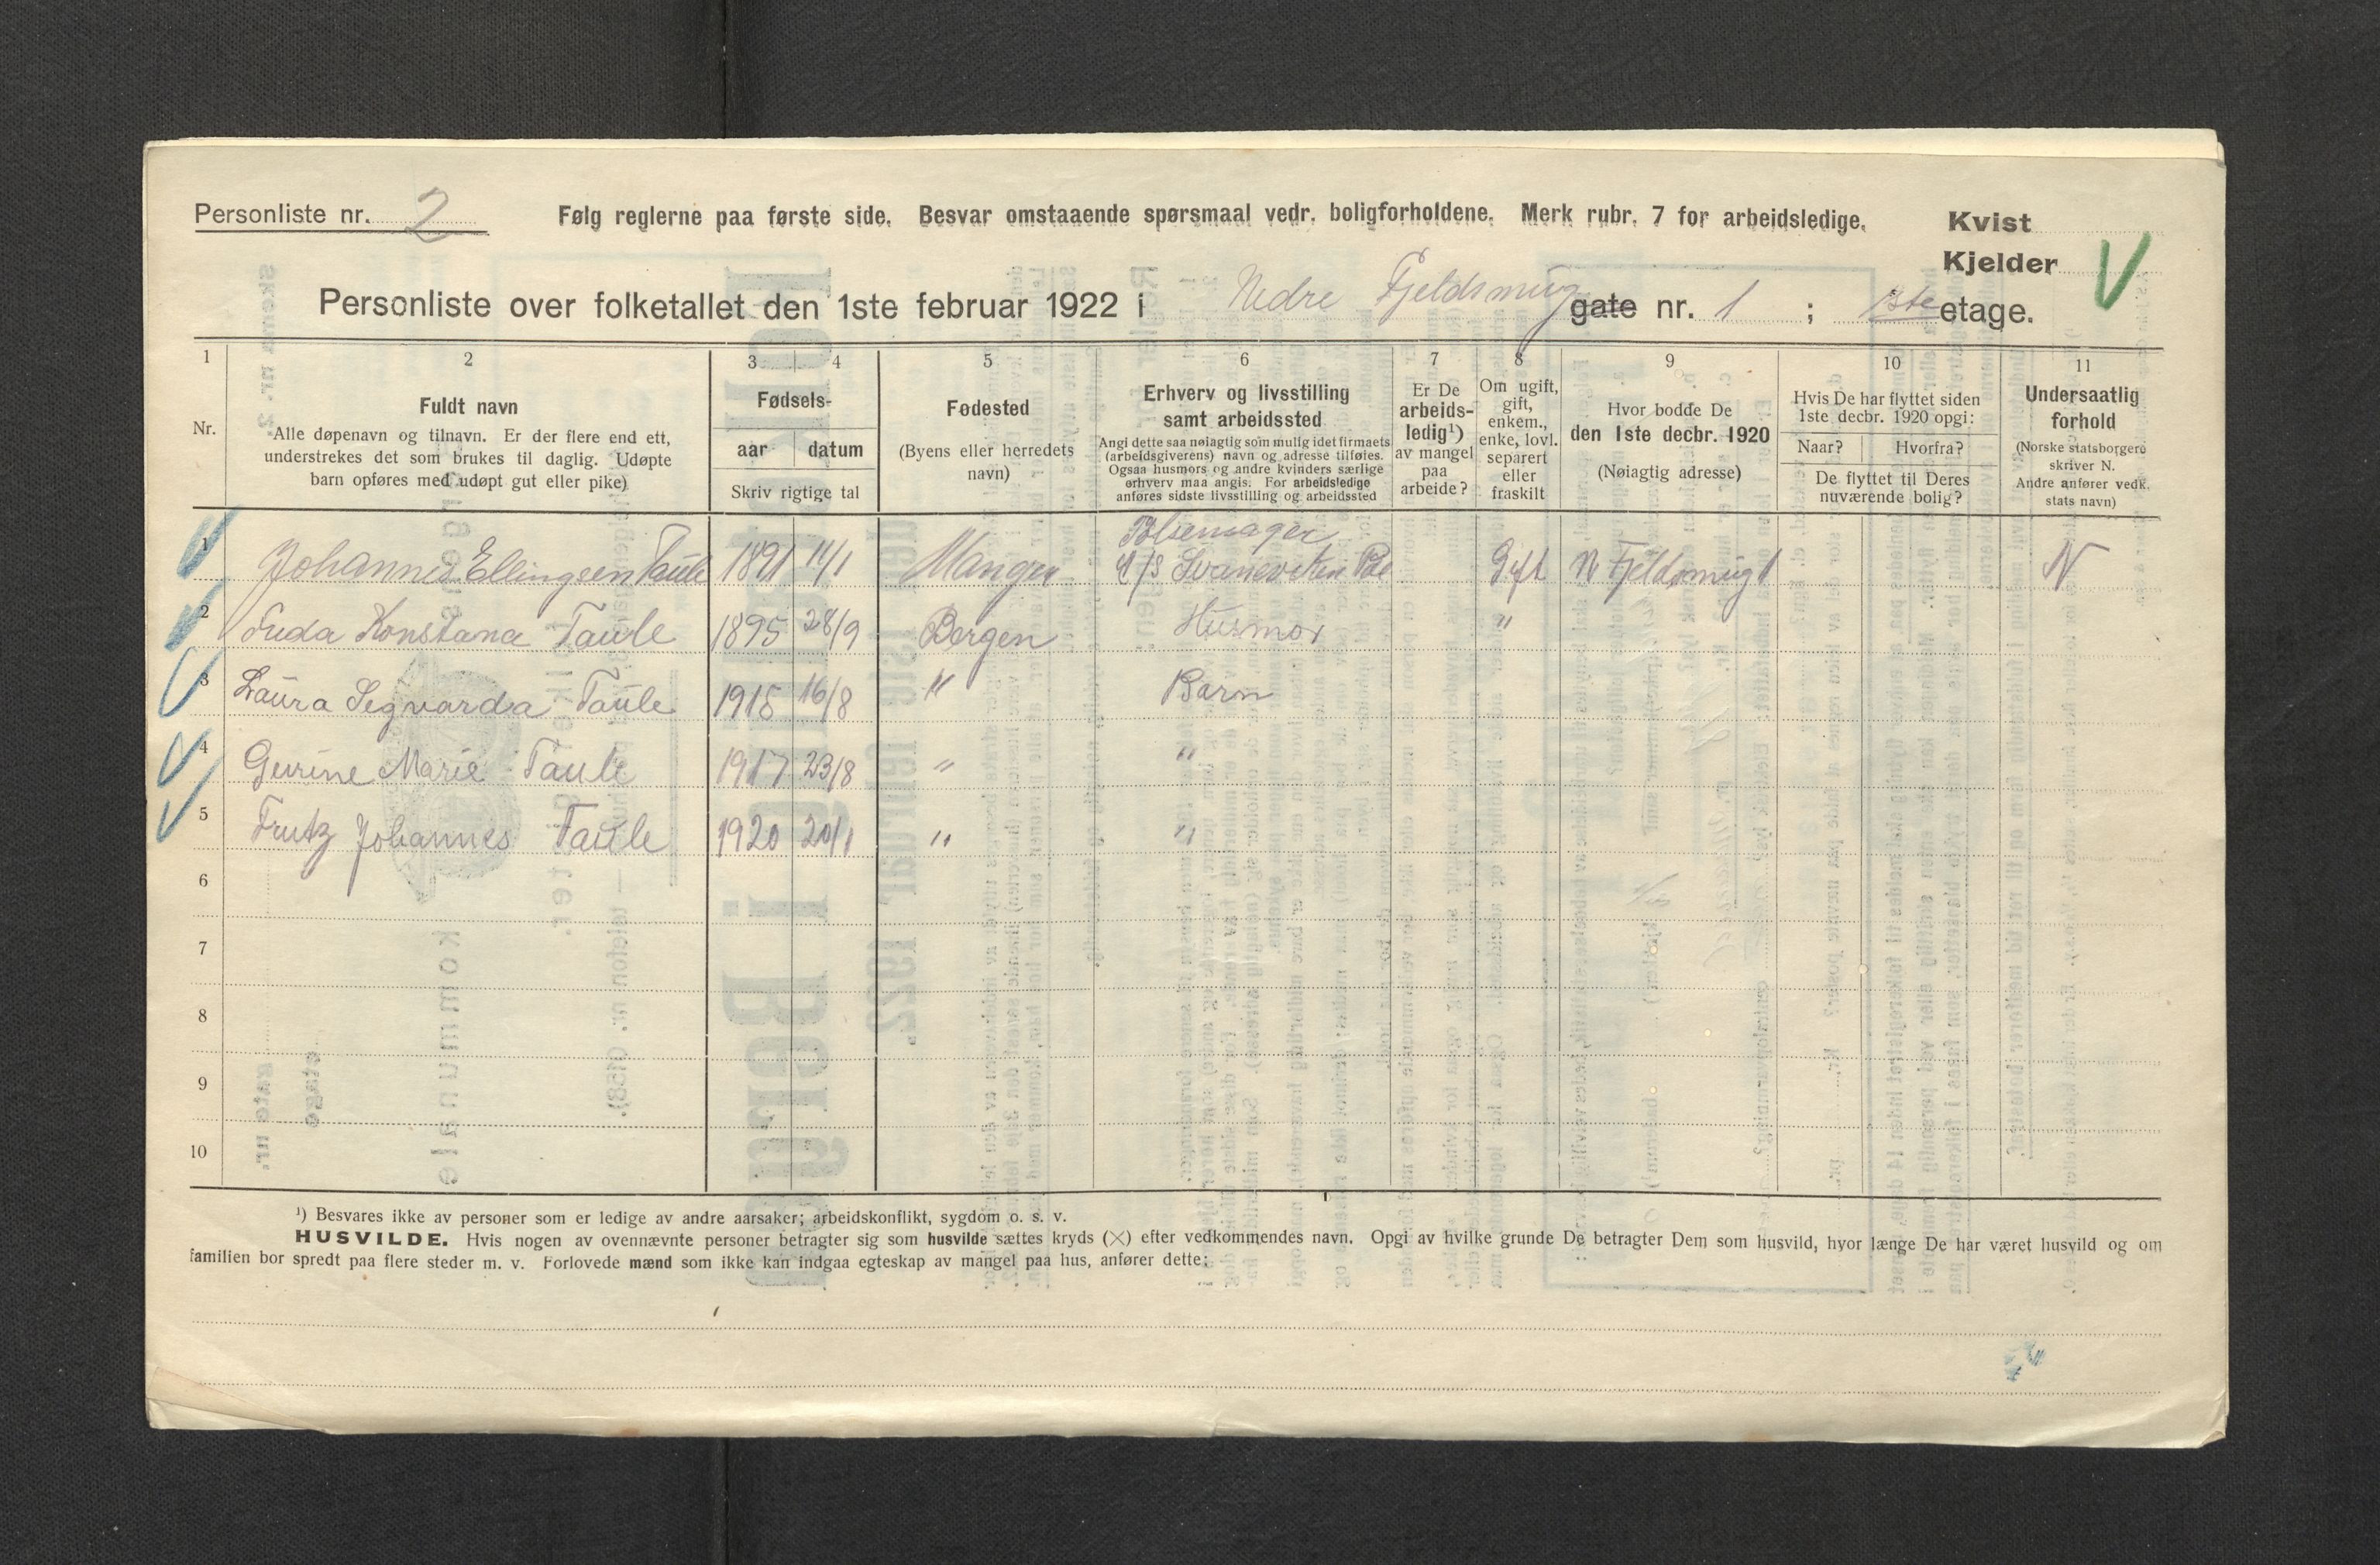 Personliste nr. 2
Følg reglerne paa første side. Besvar omstaaende spørsmaal vedr. boligforholdene. Merk rubr. 7 for arbeidsledige.
Kvist
Kjelder
Personliste over folketallet den 1ste februar 1922 i Nedre Fjeldsmug gate nr. 1 ; 1ste etage.
1 2 3 4 5 6 7 8 9 10 11
Nr.
Fuldt navn
Alle døpenavn og tilnavn. Er der flere end ett,
understrekes det som brukes til daglig. Udøpte
barn opføres med udøpt gut eller pike)
Fødsels-
aar datum
Skriv rigtige tal
Fødested
(Byens eller herredets
navn)
Erhverv og livsstilling
samt arbeidssted
Angi dette saa nøiagtig som mulig idet firmaets
(arbeidsgiverens) navn og adresse tilføies.
Ogsaa husmors og andre kvinders særlige
erhverv maa angis. For arbeidsledige
anføres sidste livsstilling og arbeidssted
Er De
arbeids-
ledig¹)
av mangel
paa
arbeide?
Om ugift,
gift,
enkem.,
enke, lovl.
separert
eller
fraskilt
Hvor bodde De
den 1ste decbr. 1920
(Nøiagtig adresse)
Hvis De har flyttet siden
1ste decbr. 1920 opgi:
Naar? Hvorfra?
De flyttet til Deres
nuværende bolig?
Undersaatlig
forhold
(Norske statsborgere
skriver N.
Andre anfører vedk.
stats navn)
Pølsemager
1 Johannes Ellingsen Taule 1891 14/1 Manger Gift N Fjeldsmug 1 N
2 Konstana Taule 1895 28/9 Bergen Husmor "
3 Laura Segvarda Taule 1915 16/8 " Barn
4 Gurine Marie Taule 1917 23/8 " "
5 Frutz Johannes Taule 1920 20/1 " "
6
7
8
9
10
¹) Besvares ikke av personer som er ledige av andre aarsaker; arbeidskonflikt, sygdom o. s. v.
HUSVILDE. Hvis nogen av ovennævnte personer betragter sig som husvilde sættes kryds (×) efter vedkommendes navn. Opgi av hvilke grunde De betragter Dem som husvild, hvor længe De har været husvild og om
familien bor spredt paa flere steder m. v. Forlovede mænd som ikke kan indgaa egteskap av mangel paa hus, anfører dette: